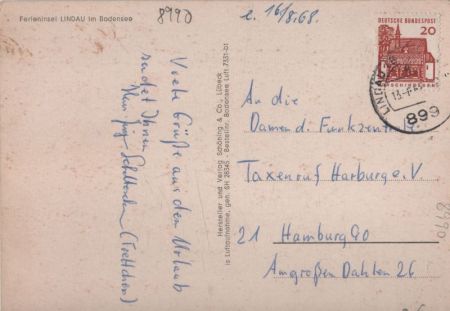 Ferieninsel LINDAU im Bodensee
8990
e. 16/8.68.
DEUTSCHE BUNDESPOST
20
LINDAU
13.-8.68
899
Viele Grüße aus dem Urlaub
sendet Ihnen
Hersteller und Verlag Schöning & Co., Lübeck
Luftaufnahme, gen. SH 28345 - Bestellnr. Bodensee Luft 7351-01
An die
Damen d. Funkzentrg.
Taxenruf Harburg e.V.
21 Hamburg 90
Amgroßen Dahlen 26
8990